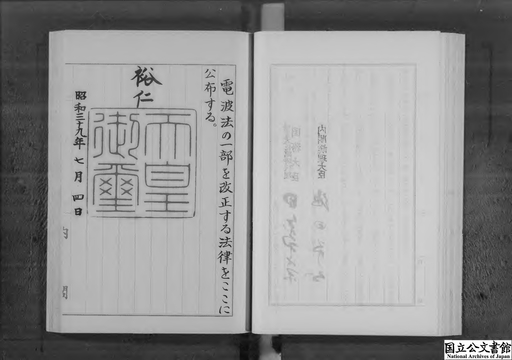 電波法の一部を改正する法律をここに
公布する。
裕仁
天皇
御璽
昭和三十九年 七月 四日
国立公文書館
National Archives of Japan